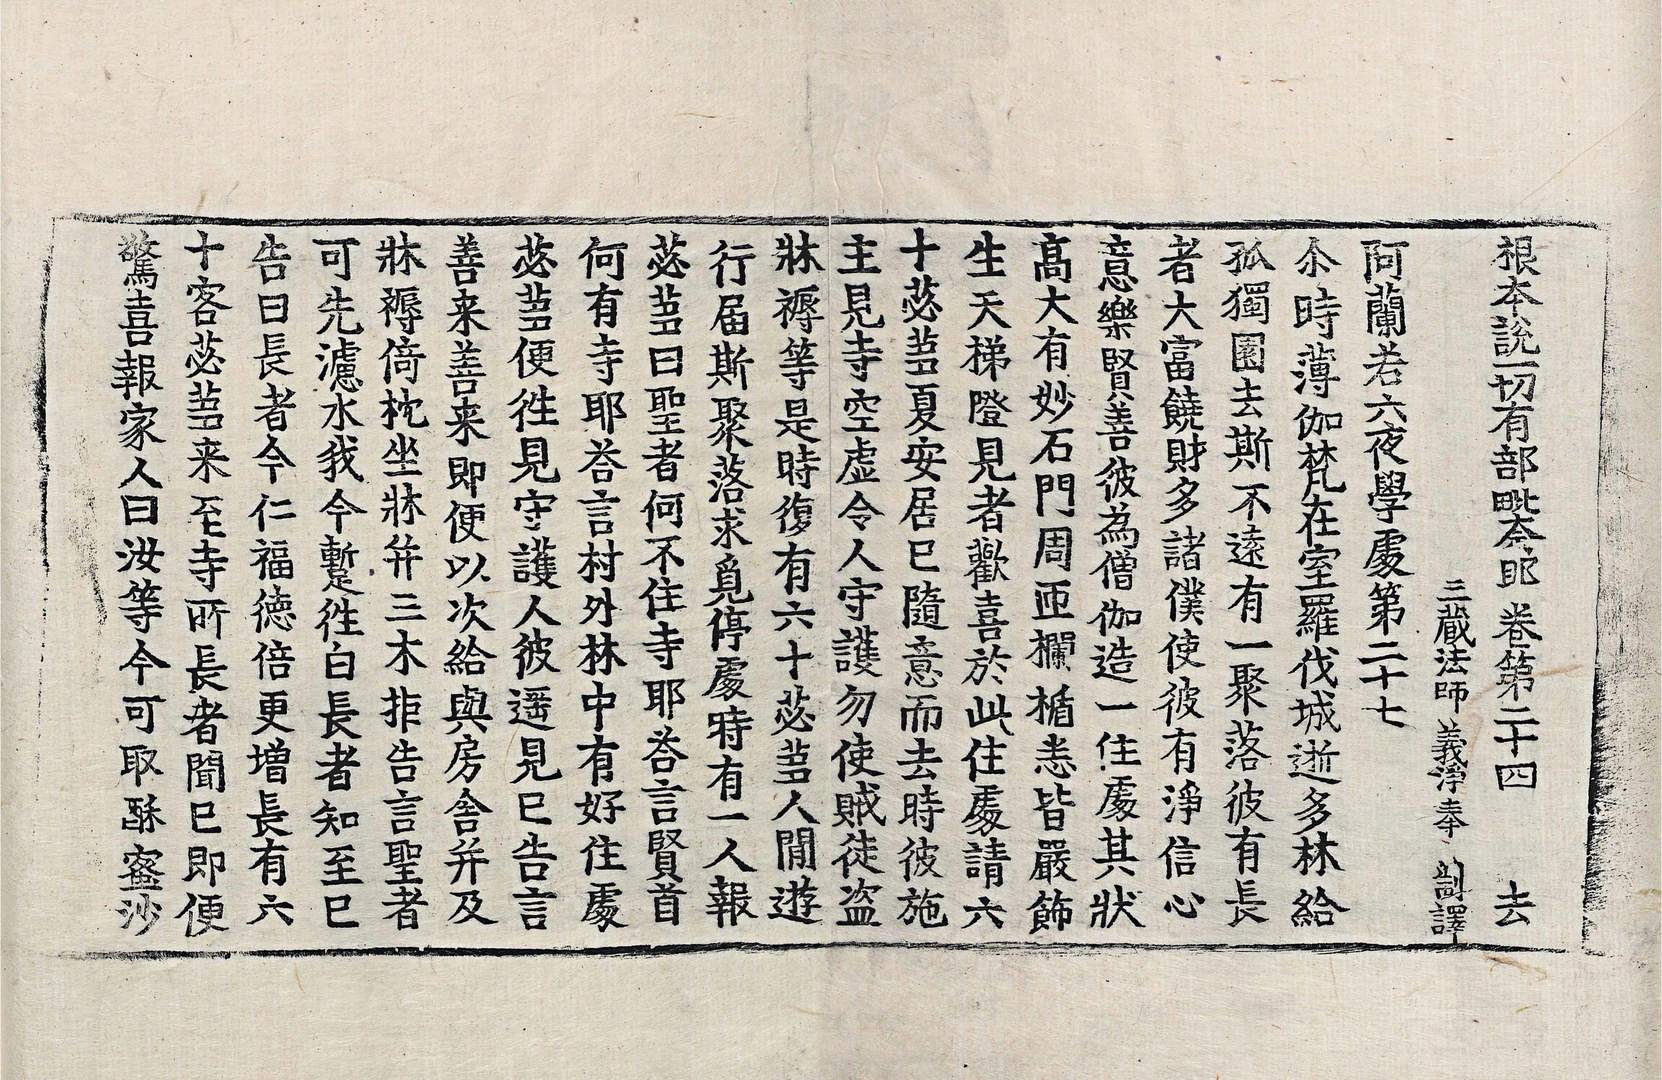 根本說一切有部毗奈耶 卷第二十四 去
三藏法師 義淨奉 制譯
阿蘭若六夜學處第二十七
尒時薄伽梵在室羅伐城逝多林給
孤獨園去斯不遠有一聚落彼有長
者大富饒財多諸僕使彼有淨信心
意樂賢善彼為僧伽造一住處其狀
高大有妙石門周匝欄楯悉皆嚴飾
生天梯隥見者歡喜於此住處請六
十苾芻夏安居已隨意而去時彼施
主見寺空虛令人守護勿使賊徒盜
牀褥等是時復有六十苾芻人閒遊
行屆斯聚落求覓停處時有一人報
苾芻曰聖者何不住寺耶荅言賢首
何有寺耶荅言村外林中有好住處
苾芻便徃見守護人彼遥見已告言
善来善来即便以次給與房舍并及
牀褥倚枕坐牀并三木拒告言聖者
可先濾水我今暫徃白長者知至已
告曰長者今仁福德倍更增長有六
十客苾芻来至寺所長者聞已即便
驚喜報家人曰汝等今可取酥蜜沙